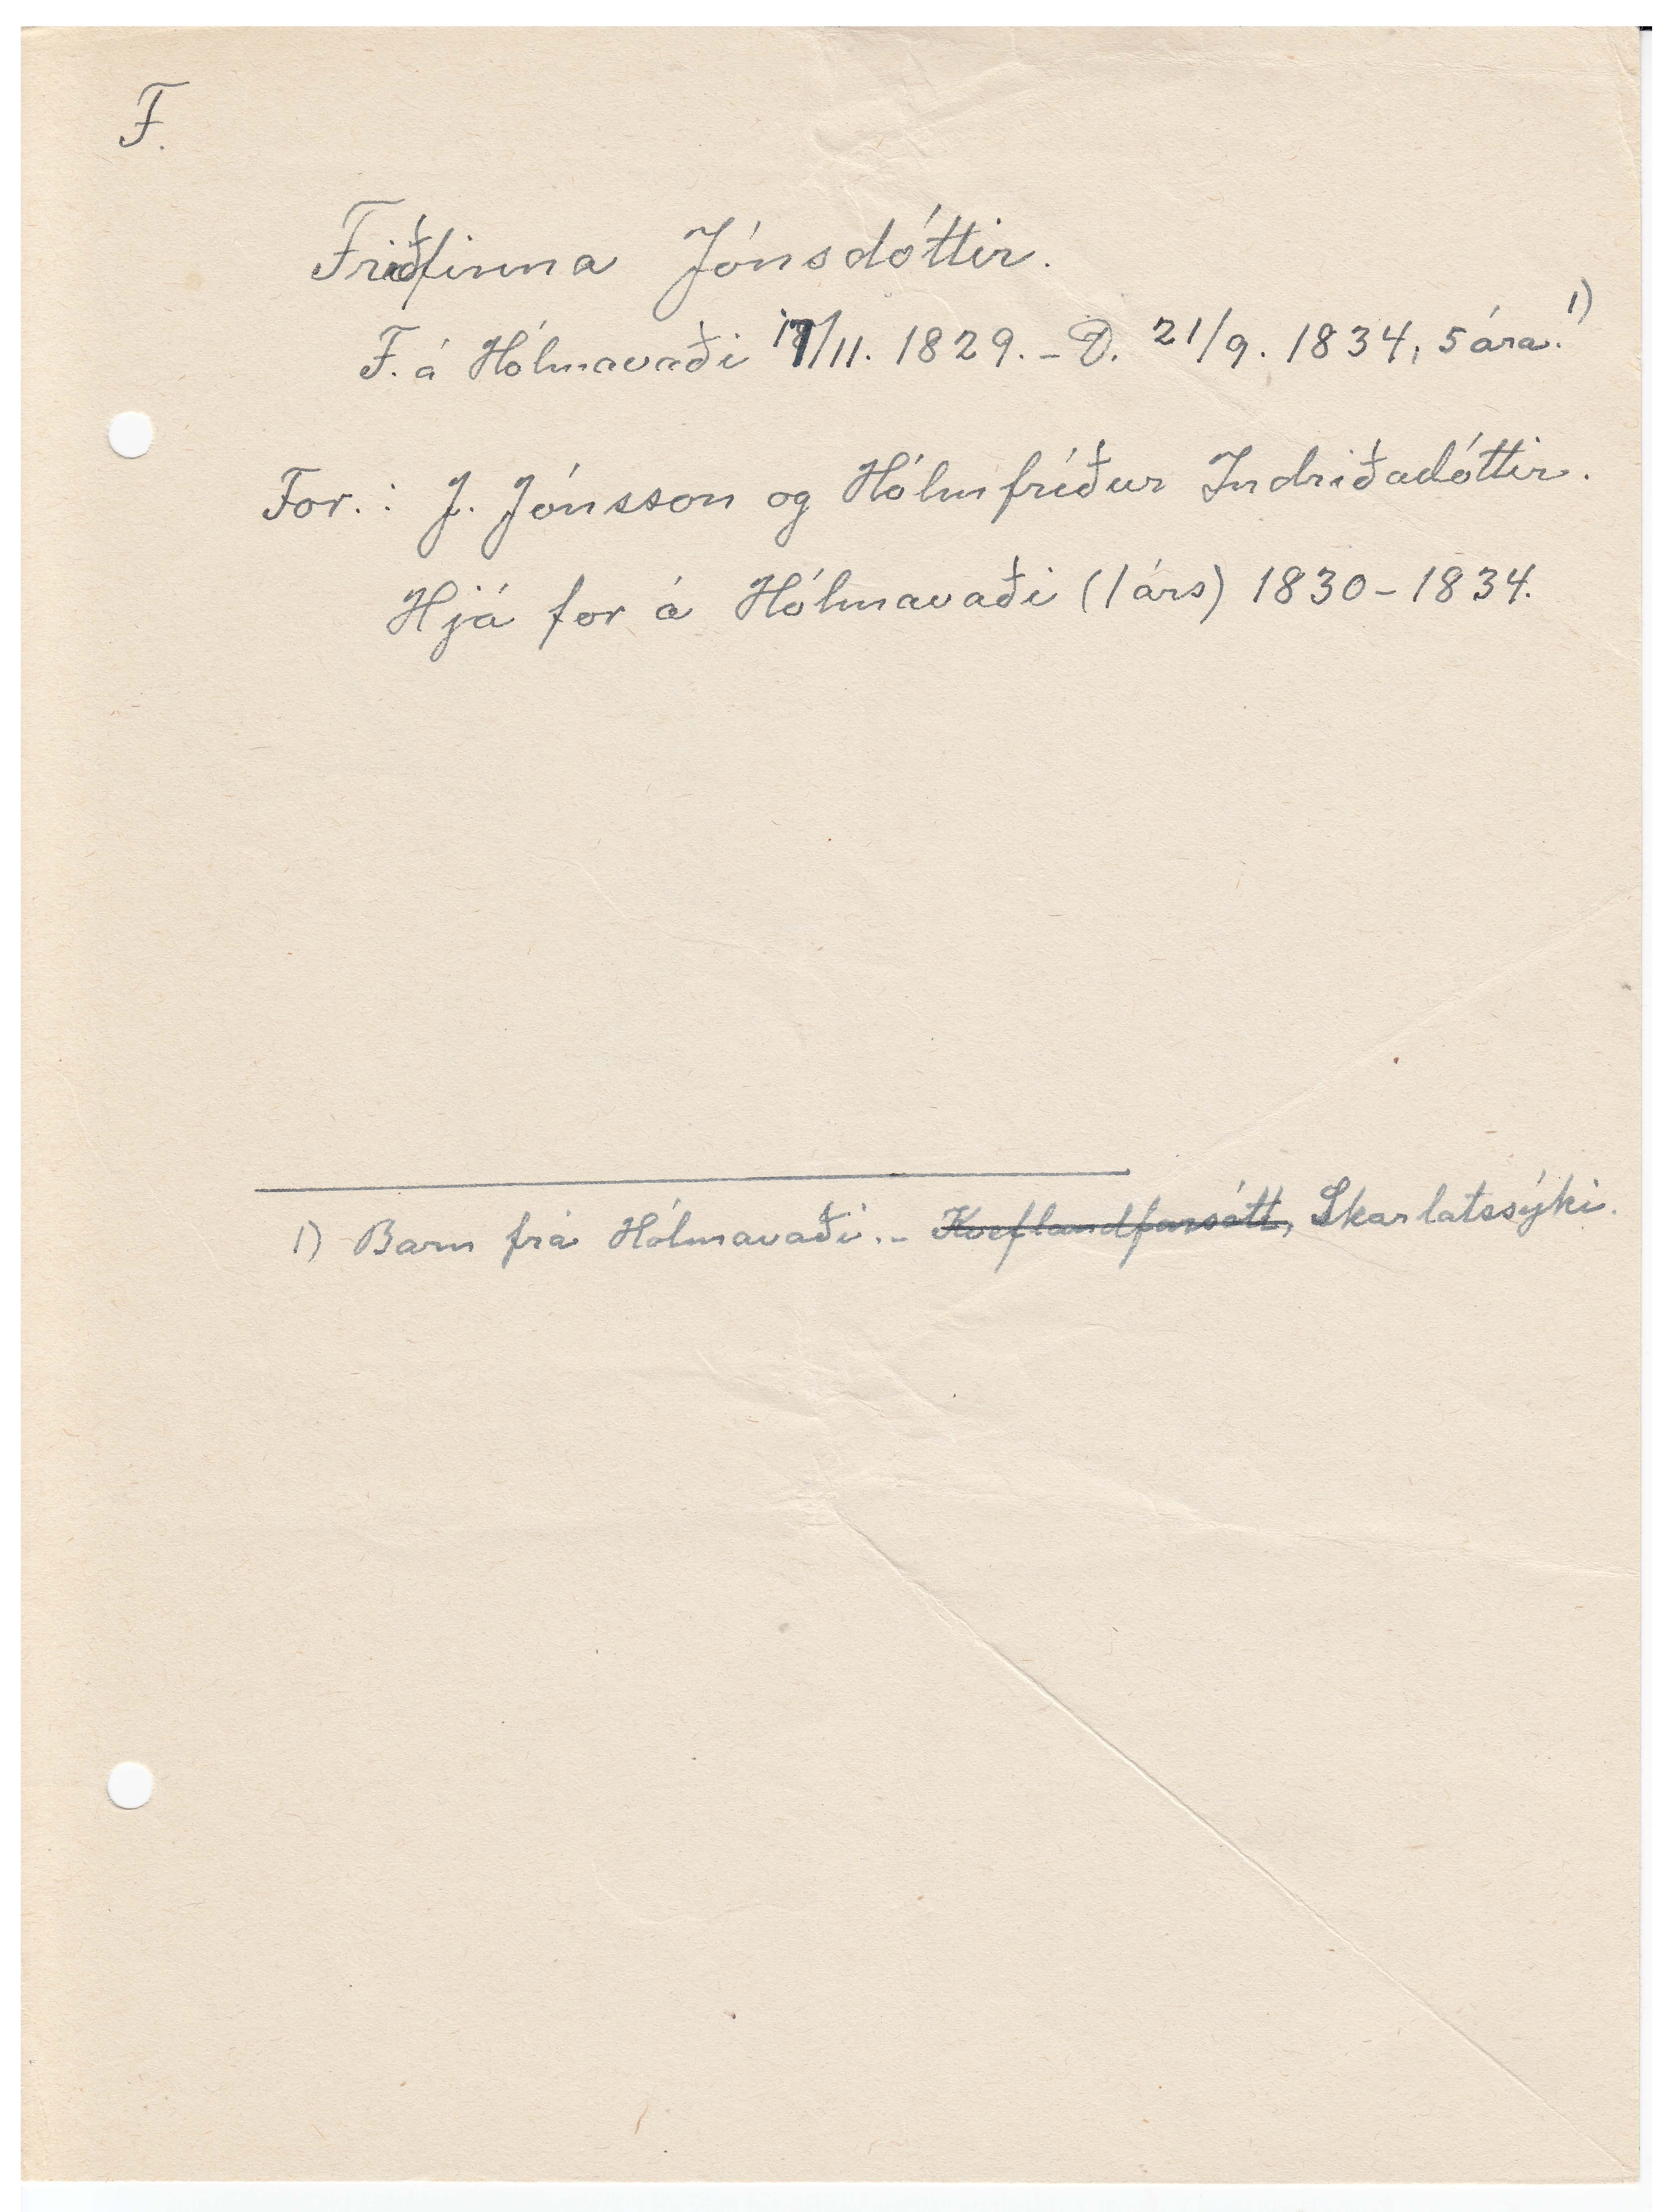 F.
Friðfinna Jónsdóttir.
F. á Hólmavaði 17/11. 1829. - D. 21/9. 1834, 5 ára. 1)
For.: J. Jónsson og Hólmfríður Indriðadóttir.
Hjá for á Hólmavaði (1 árs) 1830-1834.
1) Barn frá Hólmavaði. - Skarlatssýki.